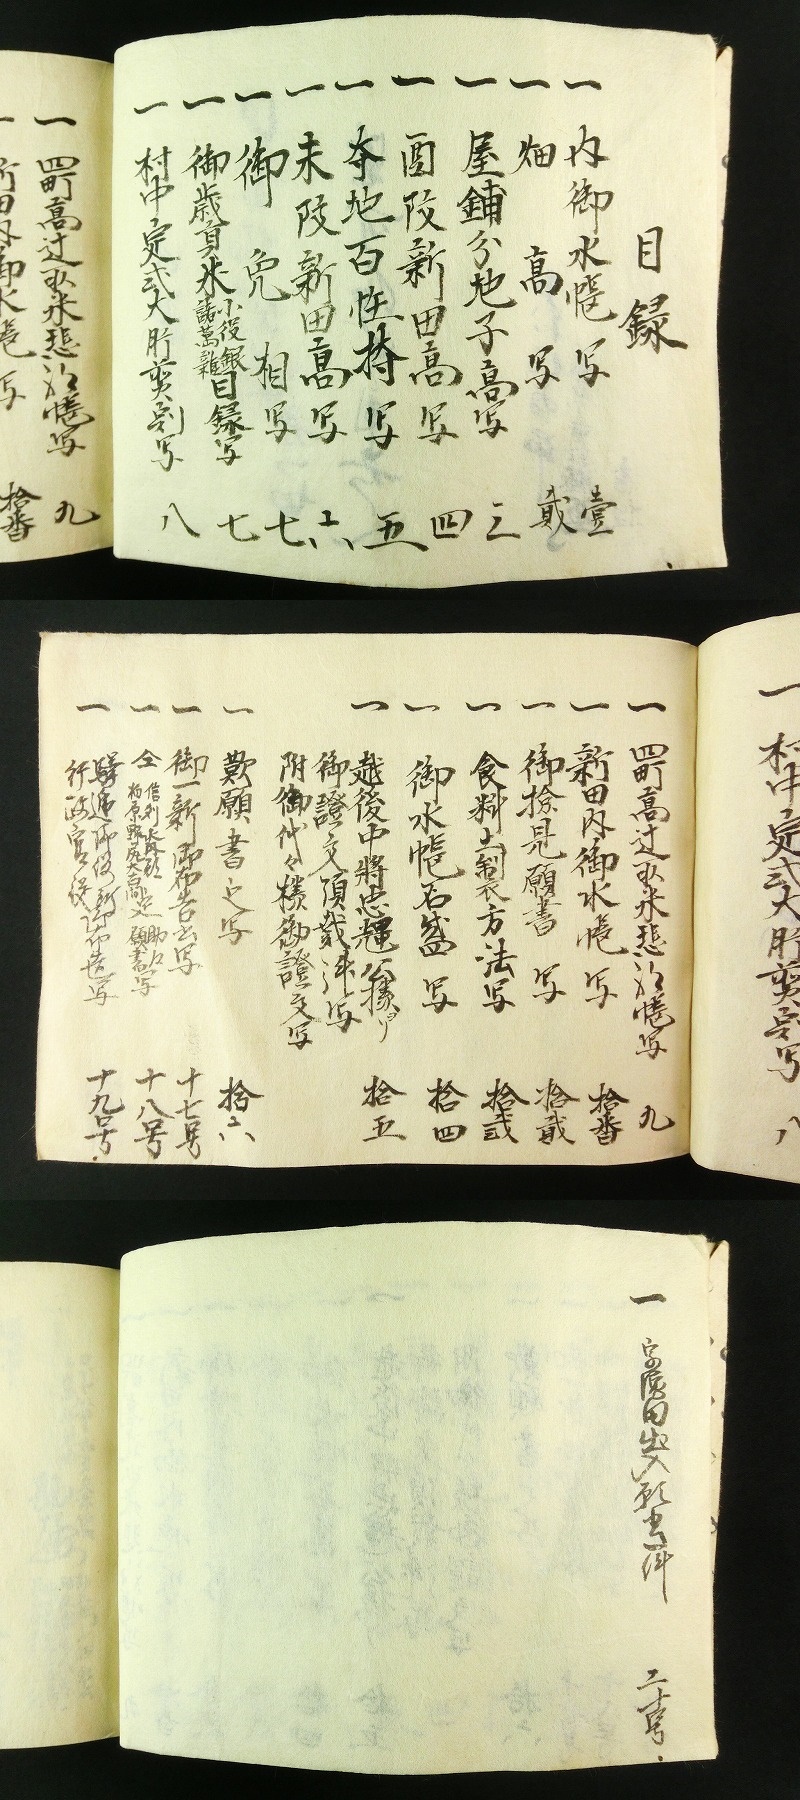 目録
一 内御水帳写 壹
一 畑高写 貳
一 屋鋪分地子高写 三
一 酉改新田高写 四
一 寺地百性持写 五
一 未改新田高写 六
一 御免相写 七
一 御歳貢米小役銀諸萬雑目録写 七
一 村中定式大肝煎写 八
一 四町高辻取米写 九
一 新田内御水帳写 拾番
一 御検見願書写 拾貳
一 食料土製方法写 拾弐
一 御水帳石盛写 拾四
一 越後中将忠輝公様ゟ
御證文頂戴津写
附御代々様御證文写 拾五
一 歎願書之写 拾六
一 御一新御布告書写 十七号
一 仝 信州 柏原野尻大古間 願書写 十八号
一 驛逓御役所御布告写
行政官 十九号
一 田出入願書 二十号
四町高辻取米写 九
新田内御水帳写 拾番
村中定式大肝煎写 八